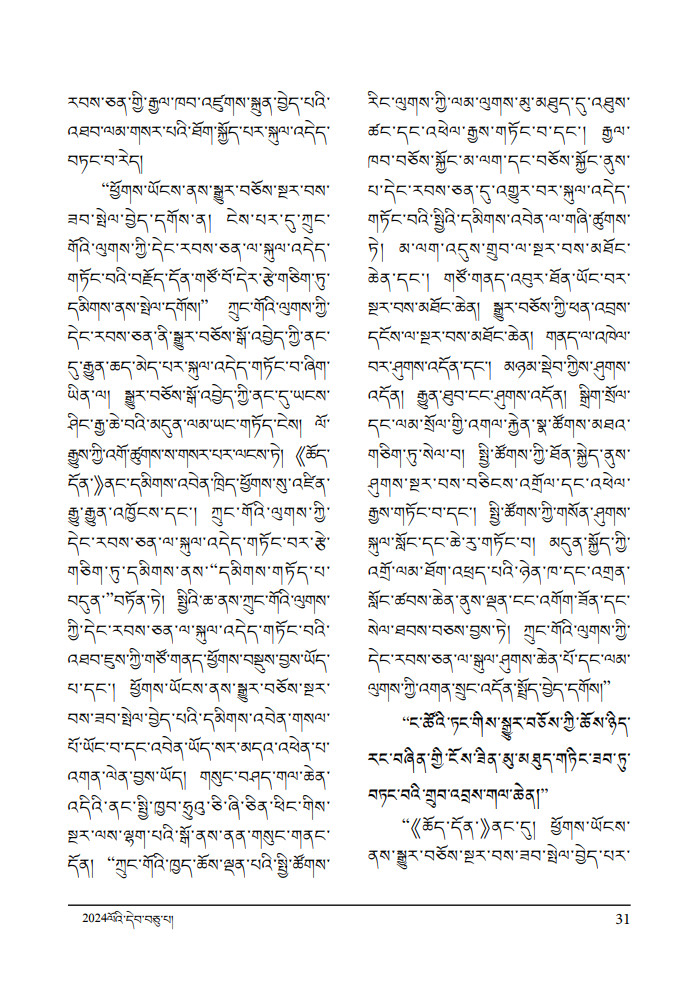 རབས་ཅན་གྱི་རྒྱལ་ཁབ་འཛུགས་སྐྲུན་བྱེད་པའི་
འཐབ་ལམ་གསར་པའི་ཐོག་སྐྱོད་པར་སྐུལ་འདེད་
བཏང་བ་རེད།
“ཕྱོགས་ཡོངས་ནས་སྒྱུར་བཅོས་སྔར་བས་
ཟབ་སྤེལ་བྱེད་དགོས་ན། ངེས་པར་དུ་ཀྲུང་
གོའི་ལུགས་ཀྱི་དེང་རབས་ཅན་ལ་སྐུལ་འདེད་
གཏོང་བའི་བརྗོད་དོན་གཙོ་བོ་དེར་རྩེ་གཅིག་ཏུ་
དམིགས་ནས་སྤེལ་དགོས།” ཀྲུང་གོའི་ལུགས་ཀྱི་
དེང་རབས་ཅན་ནི་སྒྱུར་བཅོས་སྒོ་འབྱེད་ཀྱི་ནང་
དུ་རྒྱུན་ཆད་མེད་པར་སྐུལ་འདེད་གཏོང་བ་ཞིག་
ཡིན་ལ། སྒྱུར་བཅོས་སྒོ་འབྱེད་ཀྱི་ནང་དུ་ཡངས་
ཤིང་རྒྱ་ཆེ་བའི་མདུན་ལམ་ཡང་གཏོད་ངེས། ལོ་
རྒྱུས་ཀྱི་འགོ་ཚུགས་ས་གསར་པར་ལངས་ཏེ། 《ཆོད་
དོན་》ནང་དམིགས་འབེན་ཁྲིད་ཕྱོགས་སུ་འཛིན་
རྒྱུ་རྒྱུན་འཁྱོངས་དང་། ཀྲུང་གོའི་ལུགས་ཀྱི་
དེང་རབས་ཅན་ལ་སྐུལ་འདེད་གཏོང་བར་རྩེ་
གཅིག་ཏུ་དམིགས་ནས་“དམིགས་གཏོད་པ་
བདུན་”བཏོན་ཏེ། སྤྱིའི་ཆ་ནས་ཀྲུང་གོའི་ལུགས་
ཀྱི་དེང་རབས་ཅན་ལ་སྐུལ་འདེད་གཏོང་བའི་
འཐབ་ཇུས་ཀྱི་གཙོ་གནད་ཕྱོགས་བསྡུས་བྱས་ཡོད་
པ་དང་། ཕྱོགས་ཡོངས་ནས་སྒྱུར་བཅོས་སྔར་
བས་ཟབ་སྤེལ་བྱེད་པའི་དམིགས་འབེན་གསལ་
པོ་ཡོང་བ་དང་འབེན་ཡོད་སར་མདའ་འཕེན་པ་
འགན་ལེན་བྱས་ཡོད། གསུང་བཤད་གལ་ཆེན་
འདིའི་ནང་སྤྱི་ཁྱབ་ཧྲུའུ་ཅི་ཞི་ཅིན་ཕིང་གིས་
སྔར་ལས་ལྷག་པའི་སྒོ་ནས་ནན་གསུང་གནང་
དོན། “ཀྲུང་གོའི་ཁྱད་ཆོས་ལྡན་པའི་སྤྱི་ཚོགས་
རིང་ལུགས་ཀྱི་ལམ་ལུགས་མུ་མཐུད་དུ་འཐུས་
ཚང་དང་འཕེལ་རྒྱས་གཏོང་བ་དང་། རྒྱལ་
ཁབ་བཅོས་སྐྱོང་མ་ལག་དང་བཅོས་སྐྱོང་ནུས་
པ་དེང་རབས་ཅན་དུ་འགྱུར་བར་སྐུལ་འདེད་
གཏོང་བའི་སྤྱིའི་དམིགས་འབེན་ལ་གཞི་ཚུགས་
ཏེ། མ་ལག་འདུས་གྲུབ་ལ་སྔར་བས་མཐོང་
ཆེན་དང་། གཙོ་གནད་འབུར་ཐོན་ཡོང་བར་
སྔར་བས་མཐོང་ཆེན། སྒྱུར་བཅོས་ཀྱི་ཕན་འབྲས་
དངོས་ལ་སྔར་བས་མཐོང་ཆེན། གནད་ལ་འཁེལ་
བར་ཤུགས་འདོན་དང་། མཉམ་སྡེབ་ཀྱིས་ཤུགས་
འདོན། རྒྱུན་ཐུབ་ངང་ཤུགས་འདོན། སྒྲིག་སྲོལ་
དང་ལམ་སྲོལ་གྱི་འགལ་རྐྱེན་སྣ་ཚོགས་མཐའ་
གཅིག་ཏུ་སེལ་བ། སྤྱི་ཚོགས་ཀྱི་ཐོན་སྐྱེད་ནུས་
ཤུགས་སྔར་བས་བཅིངས་འགྲོལ་དང་འཕེལ་
རྒྱས་གཏོང་བ་དང་། སྤྱི་ཚོགས་ཀྱི་གསོན་ཤུགས་
སྐུལ་སློང་དང་ཆེ་རུ་གཏོང་བ། མདུན་སྐྱོད་ཀྱི་
འགྲོ་ལམ་ཐོག་འཕྲད་པའི་ཉེན་ཁ་དང་འགྲན་
སློང་ཚབས་ཆེན་ནུས་ལྡན་ངང་འགོག་ཟོན་དང་
སེལ་ཐབས་བཅས་བྱས་ཏེ། ཀྲུང་གོའི་ལུགས་ཀྱི་
དེང་རབས་ཅན་ལ་སྒུལ་ཤུགས་ཆེན་པོ་དང་ལམ་
ལུགས་ཀྱི་འགན་སྲུང་འདོན་སྤྲོད་བྱེད་དགོས།”
“ང་ཚོའི་ཏང་གིས་སྒྱུར་བཅོས་ཀྱི་ཆོས་ཉིད་
རང་བཞིན་གྱི་ངོས་ཟིན་མུ་མཐུད་གཏིང་ཟབ་ཏུ་
བཏང་བའི་གྲུབ་འབྲས་གལ་ཆེན།”
“《ཆོད་དོན་》ནང་དུ། ཕྱོགས་ཡོངས་
ནས་སྒྱུར་བཅོས་སྔར་བས་ཟབ་སྤེལ་བྱེད་པར་
2024ལོའི་དེབ་བཅུ་པ། 31